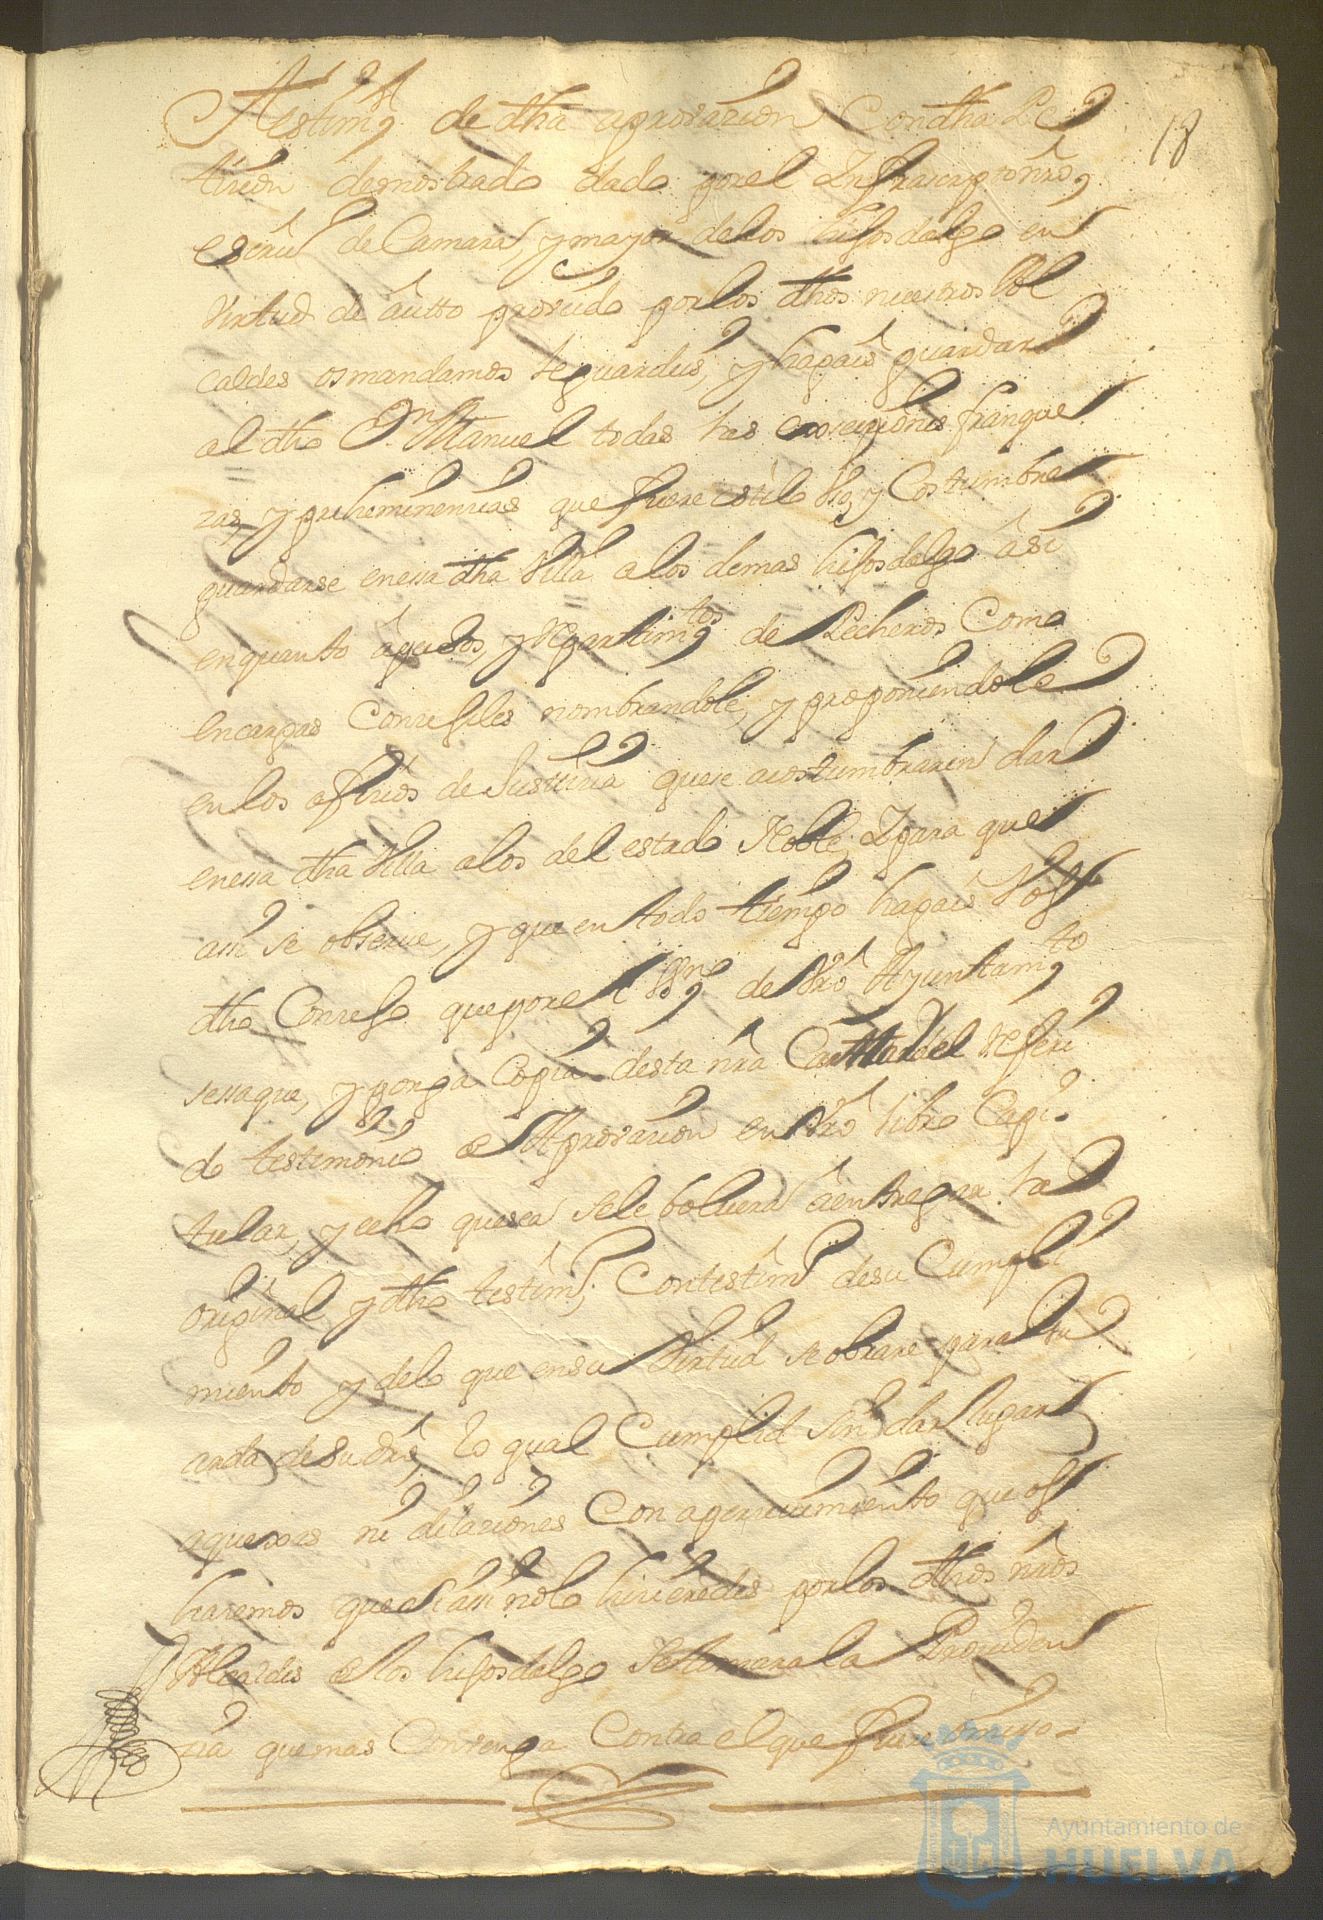 18
Testim.º de dha aprovazion Con dha Pe
tizion demostrado dado por el Infrascripto nro,
escriu.º de Camara, y mayor de los hijosdalgo en
Virtud de autto proveido por los dhos nuestros Al
caldes os mandamos le guardeis, y hagais guardar
al dho Dn. Manuel todas las exsempziones franque
zas, y preheminenzias que fuere estilo Vso, y Costumbre
guardarse en essa dha Villa a los demas hijosdalgo asi
en quanto a pechos, y Repartim.tos de Pecheros Como
en cargas Conzejiles nombrandole, y proponiendole
en los ofizios de Justizia que se acostumbraren dar
en essa dha Villa a los del estado Noble, Y para que
assi se observe, y que en todo tiempo hagais Vos
dho Conzejo que por el Essno de Vro Ayuntam.to
se saque, y ponga Copia desta nra Carta del referi
do testimonio de Aprovazion en Vro libro Capi
tular, y echo que sea se le bolvera a entregar la
original y dho testim.º, Con testim.º de su Cumpli
miento y de lo que en su Virtud se obrare para
de su dro, lo qual Cumplid sin dar lugar
a quexas ni dilaziones Con aperzivimiento que os
haremos que si assi no lo hiziereis por los dhos nros
Alcaldes de los hijosdalgo se tomara la Providen
zia que mas Convenga Contra el que fuere omisso
Ayuntamiento de
HUELVA